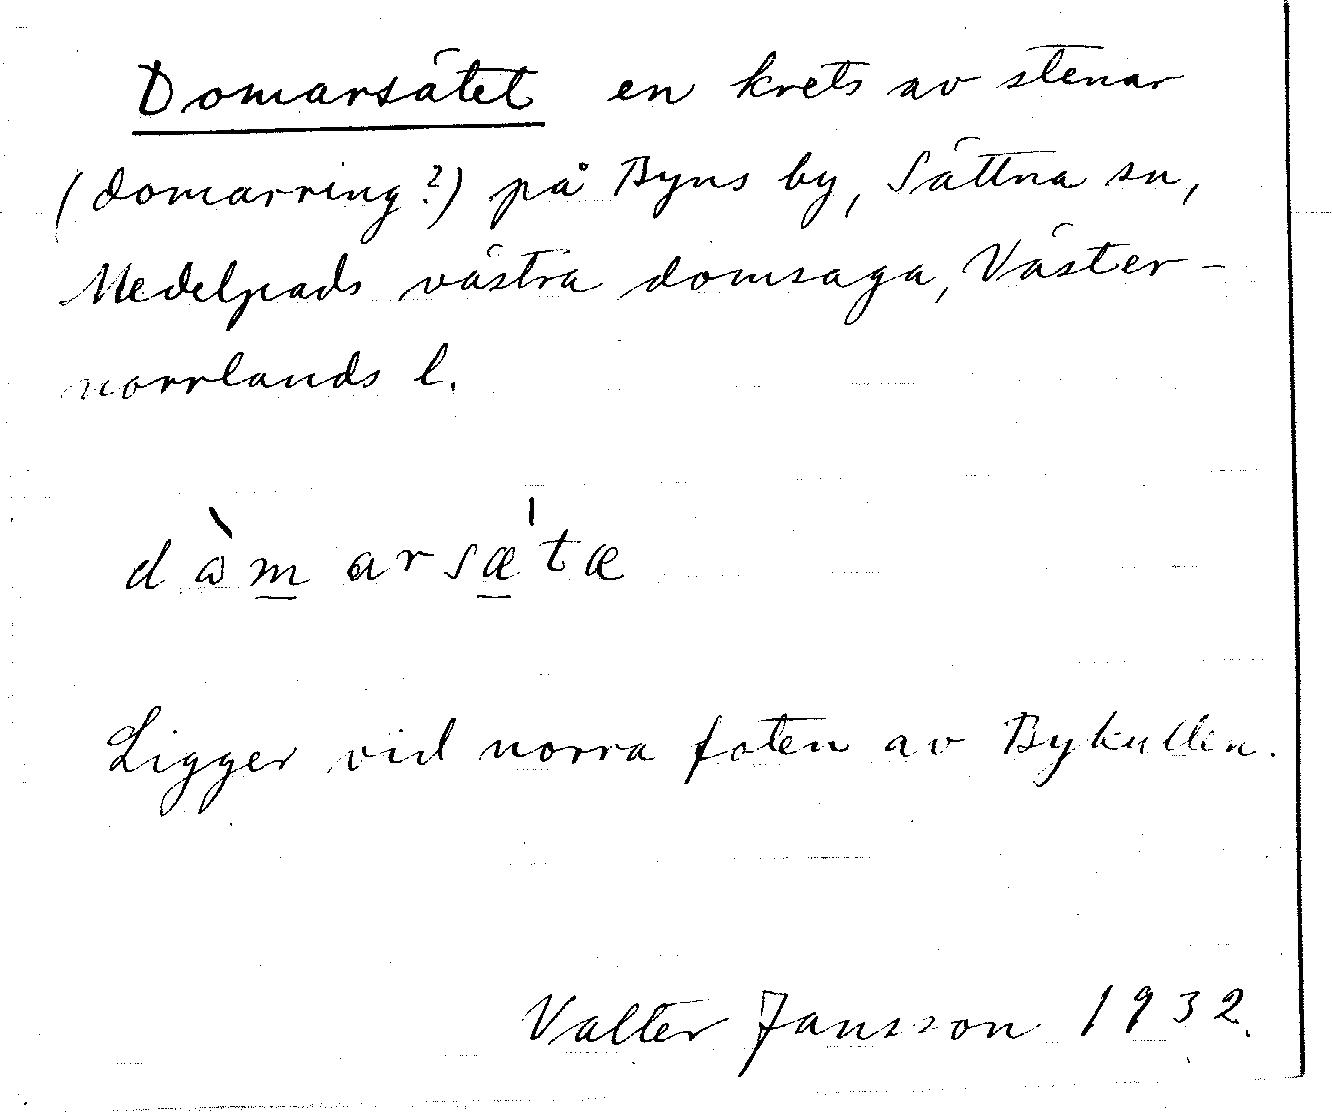 Domarsätet en krets av stenar
(domarring?) på Byns by, Sättna sn,
Medelpads västra domsaga, Väster-
norrlands l.
dòm arsæ'tæ
Ligger vid norra foten av Bykullen.
Valter Jansson 1932.